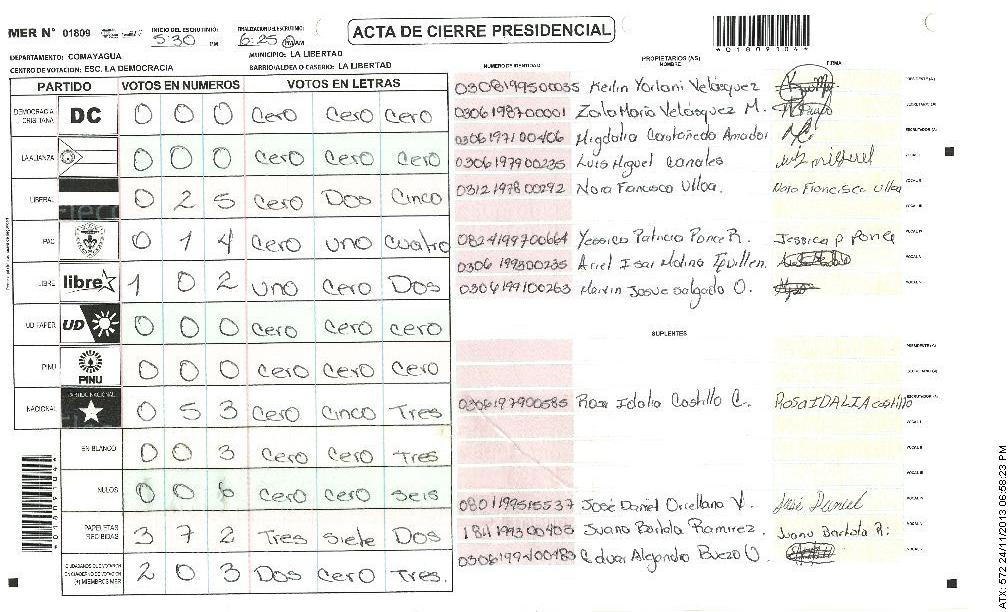 MER N° 01809 INICIO DEL ESCRUTINIO: 5:30 PM FINALIZACION DEL ESCRUTINIO: 6:25 PM/AM
ACTA DE CIERRE PRESIDENCIAL
*01809104*
DEPARTAMENTO: COMAYAGUA MUNICIPIO: LA LIBERTAD
CENTRO DE VOTACION: ESC. LA DEMOCRACIA BARRIO/ALDEA O CASERIO: LA LIBERTAD
PARTIDO VOTOS EN NUMEROS VOTOS EN LETRAS
DEMOCRACIA CRISTIANA DC 0 0 0 Cero Cero Cero
LA ALIANZA 0 0 0 Cero Cero Cero
LIBERAL 0 2 5 Cero Dos Cinco
PAC 0 1 4 Cero uno cuatro
LIBRE libre 1 0 2 uno Cero Dos
UD FAPER UD 0 0 0 Cero Cero cero
PINU PINU 0 0 0 Cero Cero Cero
NACIONAL PARTIDO NACIONAL 0 5 3 Cero Cinco Tres
EN BLANCO 0 0 3 Cero Cero Tres
NULOS 0 0 6 Cero Cero Seis
PAPELETAS RECIBIDAS 3 7 2 Tres Siete Dos
CIUDADANOS QUE VOTARON EN CUADERNO DE VOTACION (+) MIEMBROS MER 2 0 3 Dos Cero Tres.
PROPIETARIOS (AS)
NUMERO DE IDENTIDAD NOMBRE FIRMA
0308199500035 Yorlani Velásquez PRESIDENTE (A)
0306198700001 Zoila María Velásquez M. SECRETARIO (A)
0306197100406 Migdalia Castañeda Amador ESCRUTADOR (A)
0306197900235 Luis Miguel Canales Luiz miguel VOCAL I
0312197800292 Nora Francisca Ulloa. Nora Francisca Ulloa VOCAL II
VOCAL III
0824199700664 Yessica Patricia Ponce R. Jessica p ponce VOCAL IV
0306199300235 Ariel Isai Molina VOCAL V
0304199100263 Marvin Josue Salgado O.
SUPLENTES
PRESIDENTE (A)
SECRETARIO (A)
0306197900585 Rosa Idalia Castillo C. ROSA IDALIA castillo ESCRUTADOR (A)
VOCAL I
VOCAL II
VOCAL III
José Daniel Orellana V. José Daniel VOCAL IV
Juana Bartola Ramirez. Juana Bartola R. VOCAL V
Alejandro
*01809104*
ATX: 572 24/11/2013 06:58:23 PM